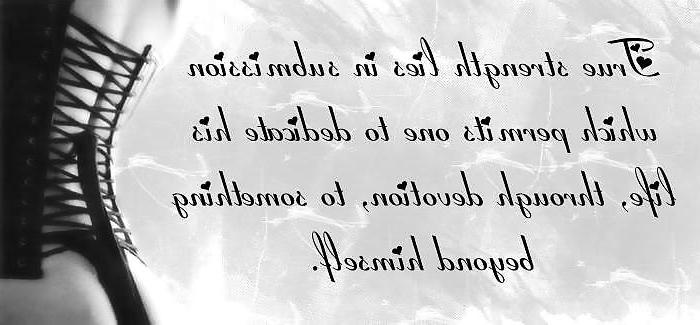 True strength lies in submission
which permits one to dedicate his
life, through devotion, to something
beyond himself.